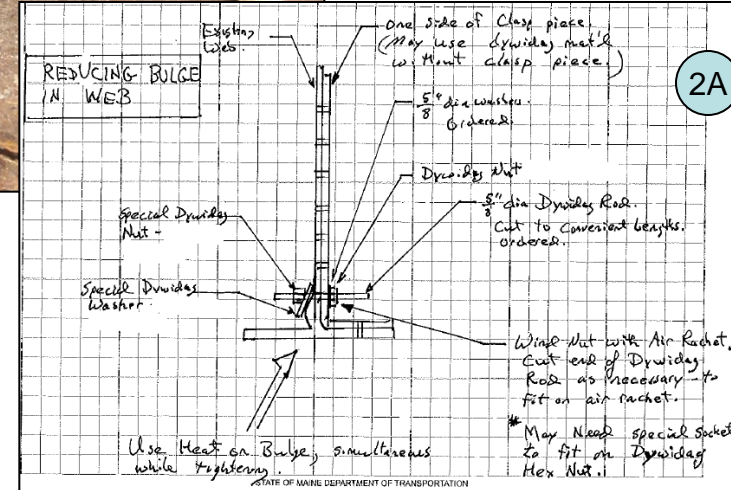 Existing
Web.
REDUCING BULGE
IN WEB
One side of Clasp piece.
(May use dywidag mat'l
without clasp piece.)
2A
5/8" dia washers
Ordered.
Dywidag Nut
5/8" dia Dywidag Rod.
Cut to Convenient Lengths.
ordered.
Special Dywidag
Nut -
Special Dywidag
Washer
Wind Nut with Air Rachet.
Cut end of Dywidag
Rod as necessary to
fit on air rachet.
* May Need special socket
to fit on Dywidag
Hex Nut.
Use Heat on Bulge, simultaneous
while tightening.
STATE OF MAINE DEPARTMENT OF TRANSPORTATION